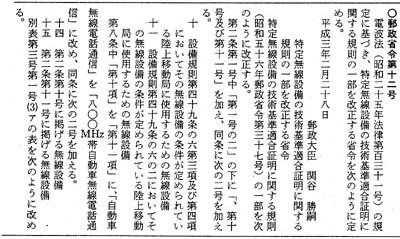 〇郵政省令第十二号
電波法(昭和二十五年法律第百三十一号)の規
定に基づき、特定無線設備の技術基準適合証明に
関する規則の一部を改正する省令を次のように定
める。
平成三年二月二十八日
郵政大臣　関谷　勝嗣
特定無線設備の技術基準適合証明に関する
規則の一部を改正する省令
特定無線設備の技術基準適合証明に関する規則
(昭和五十六年郵政省令第三十七号)の一部を次
のように改正する。
第二条第一号中「第一号の二」の下に「、第十
号及び第十一号」を加え、同条に次の二号を加え
る。
十　設備規則第四十九条の六第三項及び第四項
においてその無線設備の条件が定められてい
る陸上移動局に使用するための無線設備
十一　設備規則第四十九条の六の二においてそ
の無線設備の条件が定められている陸上移動
局に使用するための無線設備
第八条中「第十項」を「第十一項」に、「自動車
無線電話通信」を「八〇〇MHz帯自動車無線電話通
信」に改め、同条に次の二号を加える。
十四　第二条第十号に掲げる無線設備
十五　第二条第十一号に掲げる無線設備
別表第三号第一号(3)アの表を次のように改め
る。